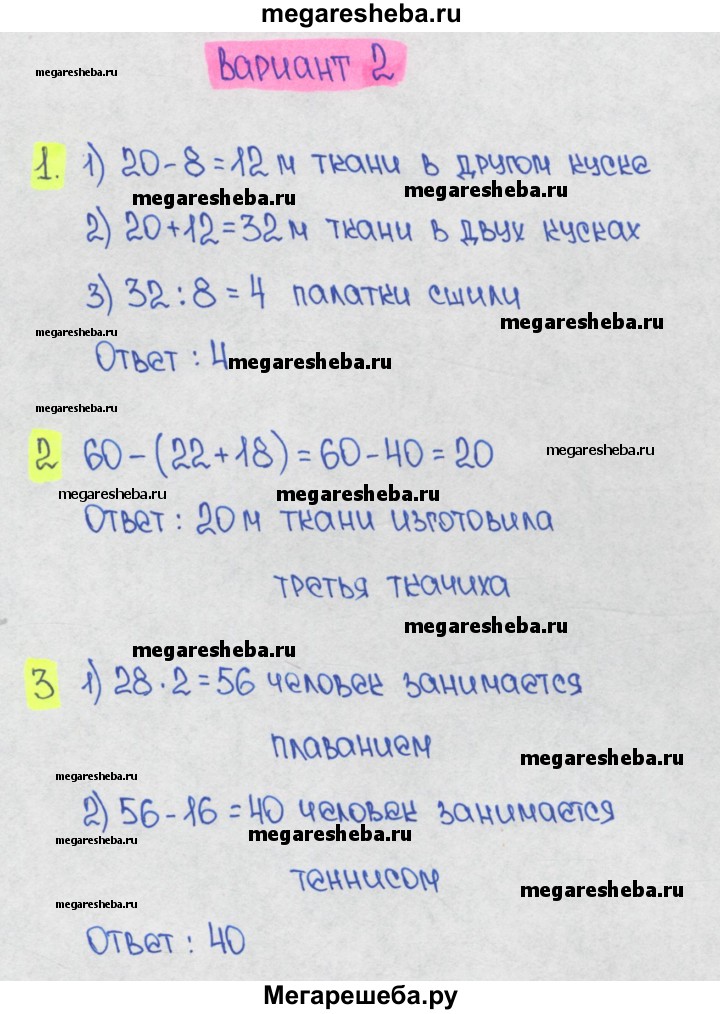 megaresheba.ru
Вариант 2
megaresheba.ru
1. 1) 20-8=12 м ткани в другом куске
megaresheba.ru megaresheba.ru
2) 20+12=32 м ткани в двух кусках
3) 32:8=4 палатки сшили
megaresheba.ru
megaresheba.ru
Ответ: 4
megaresheba.ru
megaresheba.ru
2 60-(22+18)=60-40=20
megaresheba.ru
megaresheba.ru megaresheba.ru
Ответ: 20 м ткани изготовила
третья ткачиха
megaresheba.ru
megaresheba.ru
3 1) 28·2=56 человек занимается
плаванием
megaresheba.ru
megaresheba.ru
2) 56-16=40 человек занимается
megaresheba.ru
megaresheba.ru
теннисом
megaresheba.ru
megaresheba.ru
Ответ: 40
Мегарешеба.ру